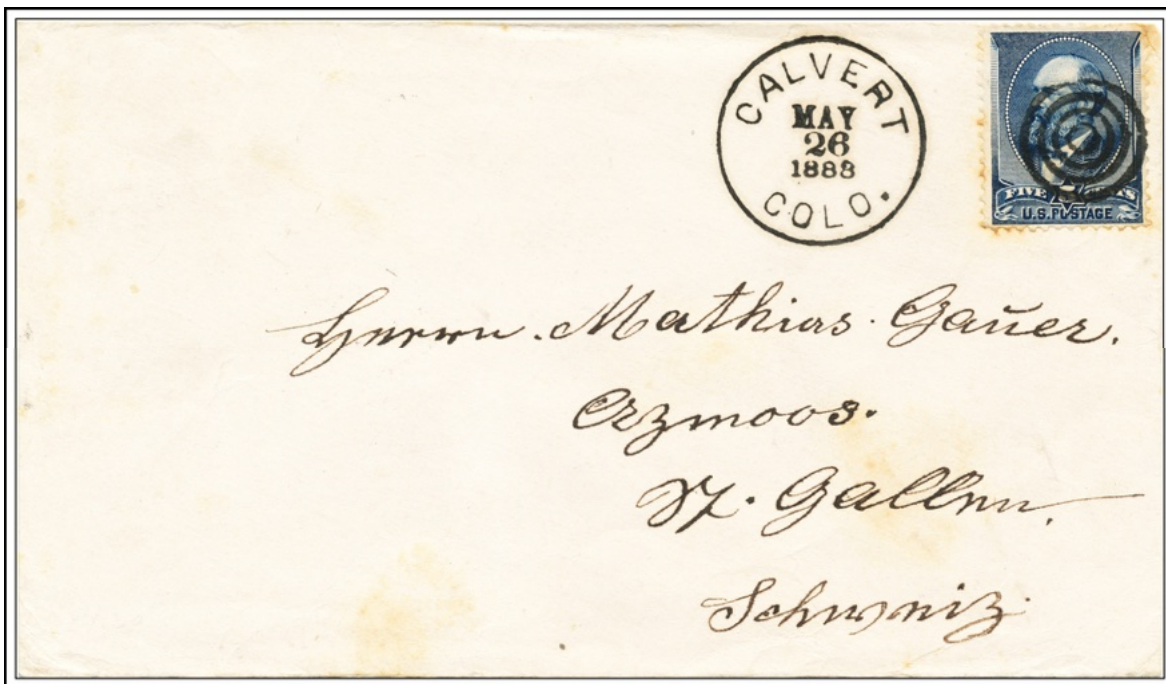 CALVERT
MAY
26
1888
COLO.
FIVE CENTS
U.S. POSTAGE
Herrn. Mathias. Gauer.
Azmoos.
St. Gallen.
Schweiz.